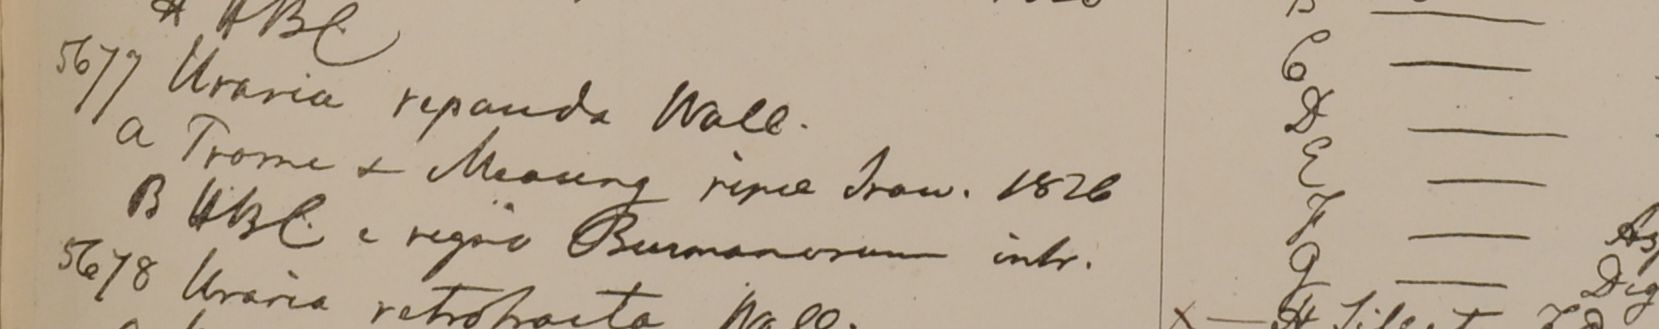 HBC
5677 Uraria repanda Wall.
a Prome & Meaong ripæ Iraw. 1826
B HBC. e regno Burmanorum intr.
5678 Uraria retrofracta Wall.
B
C
D
E
F
G
H